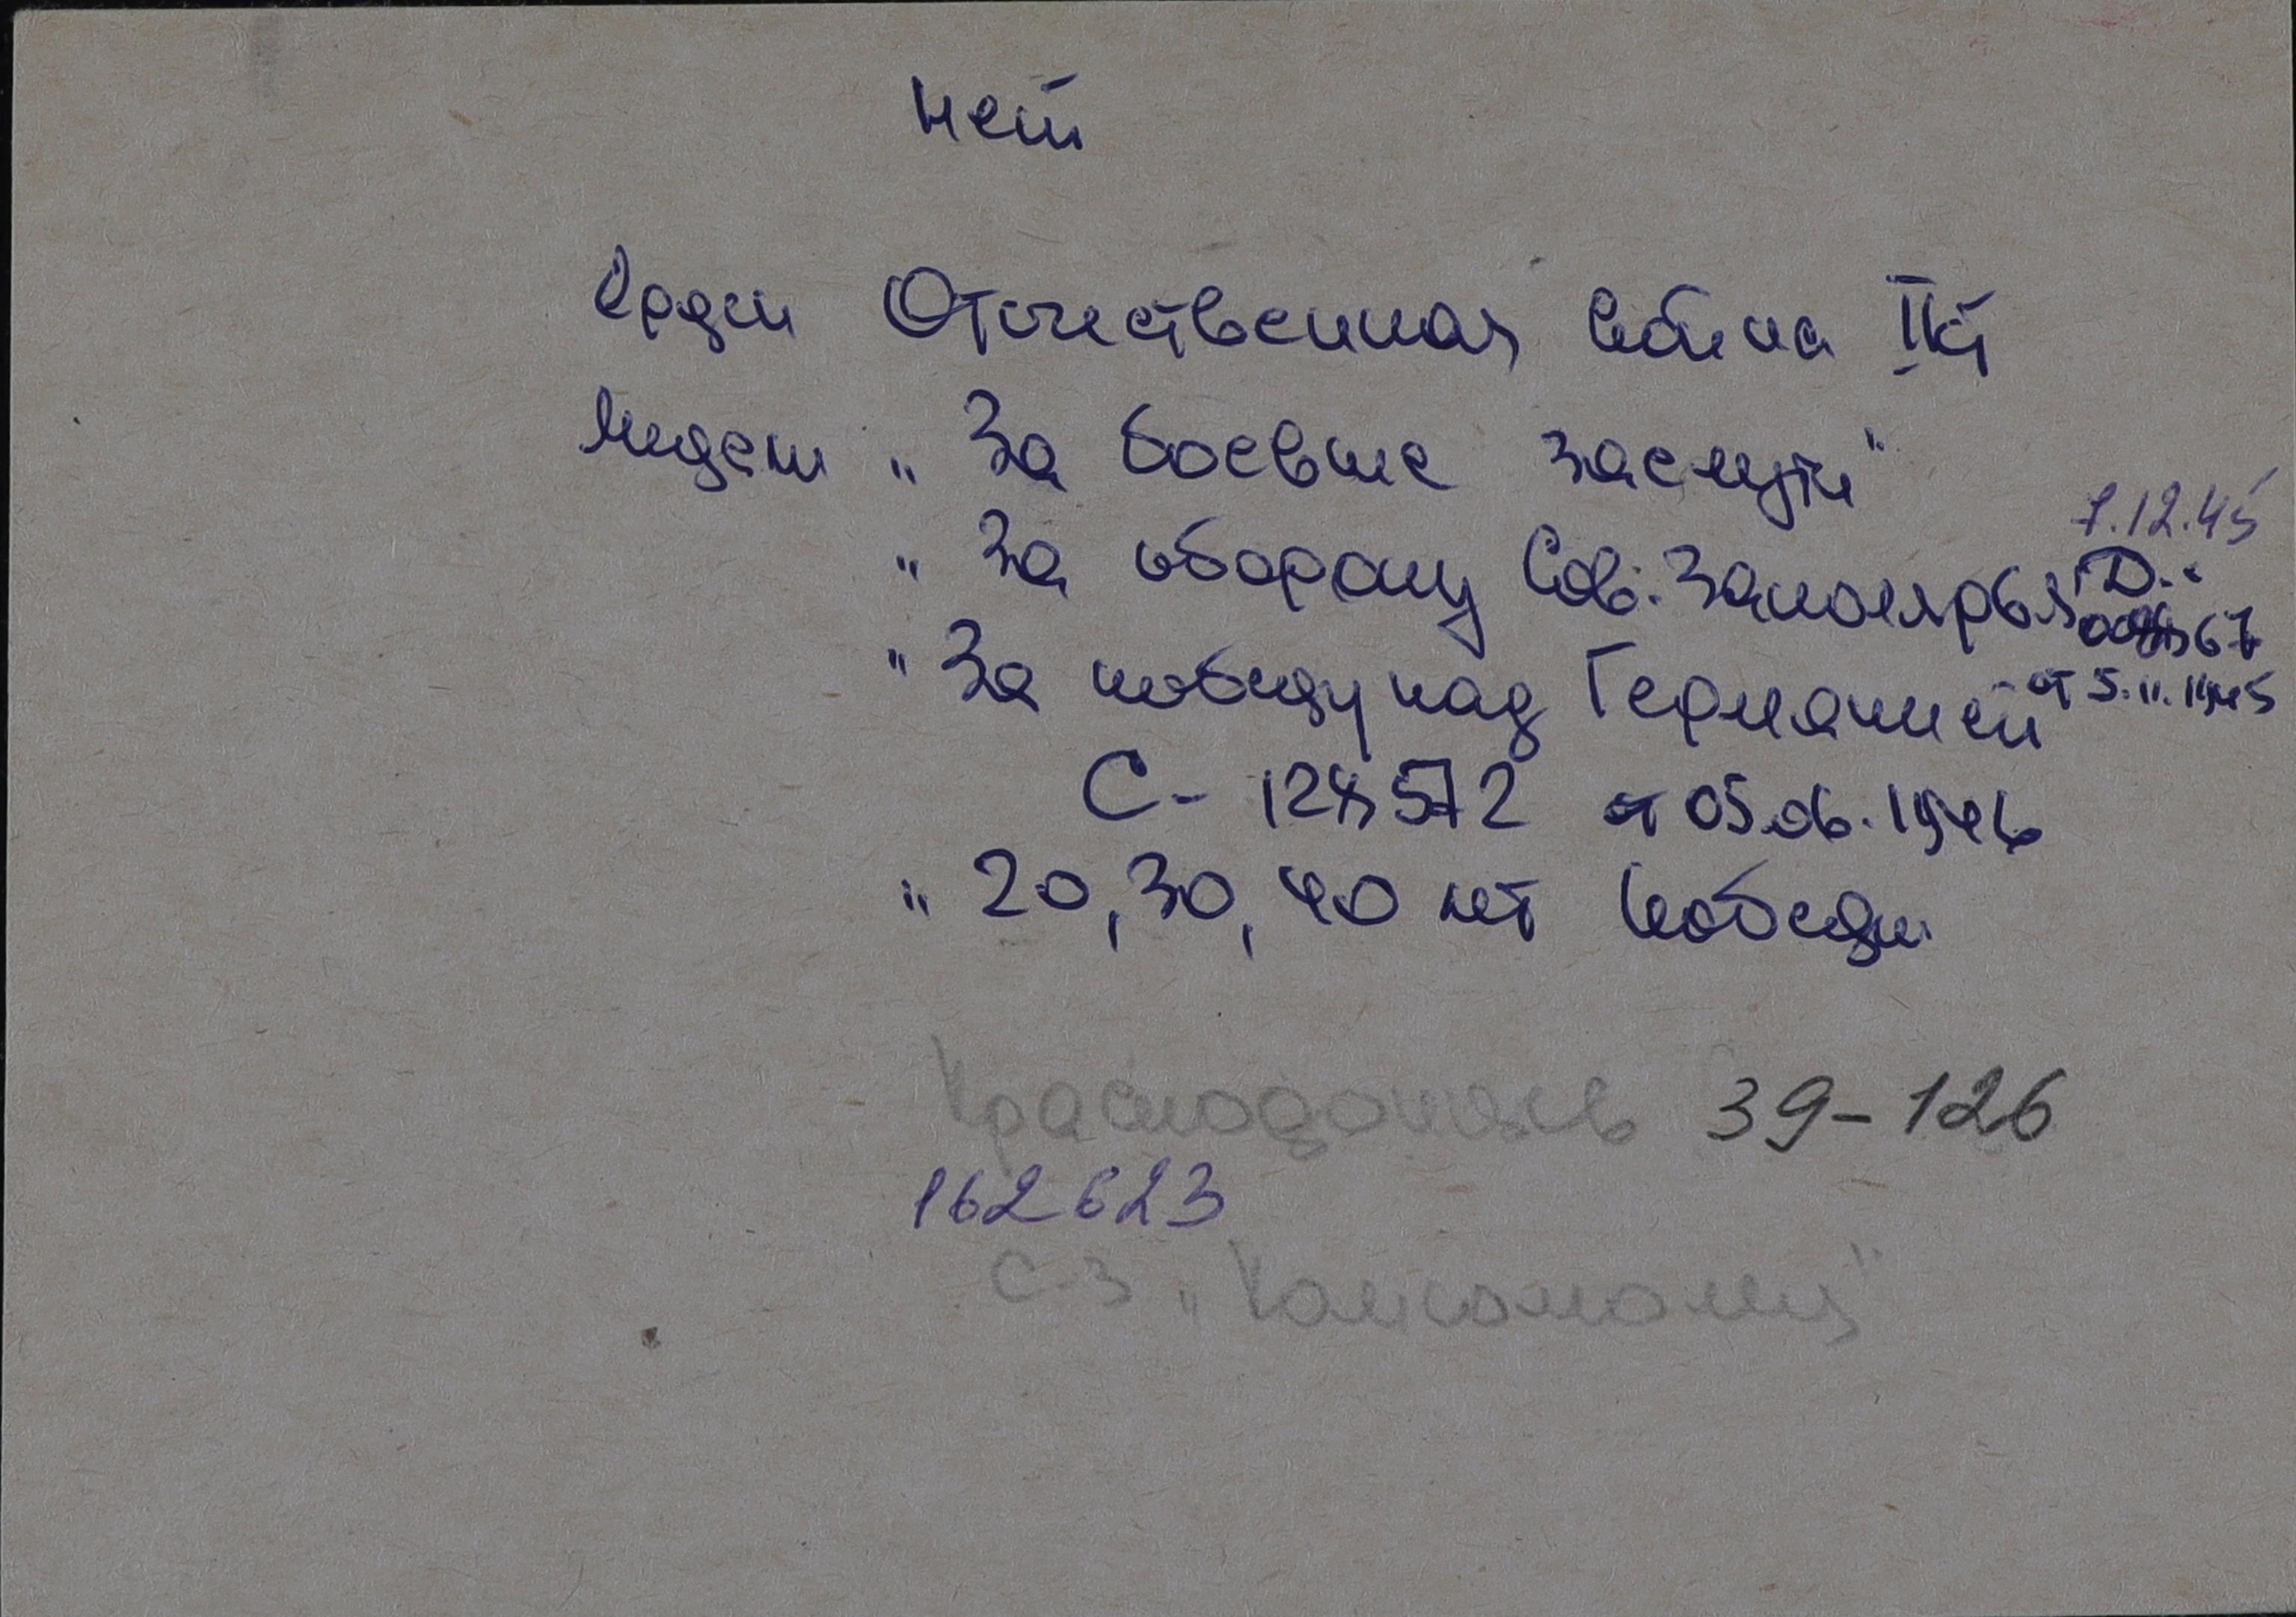 нет
Орден Отечественная война II ст
Медали „За боевые заслуги"
7.12.45
„За оборону Сов. Заполярья Д..
67
„За победу над Германией от 5.11.1945
С- 128572 от 05.06.1946
„ 20, 30, 40 лет Победы
39-126
162623
с-з „Комсомолец"